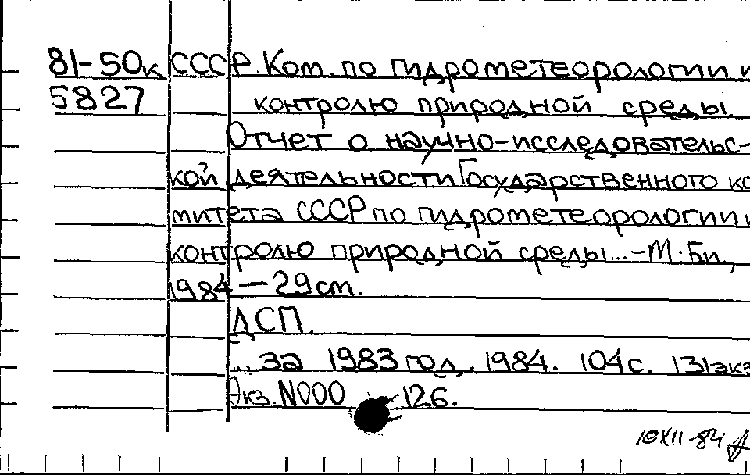 81-50к СССР. Ком. по гидрометеорологии и
5827 контролю природной среды.
Отчет о научно-исследовательс-
кой деятельности Государственного ко
митета СССР по гидрометеорологии и
контролю природной среды...-М.Би,
1984 - 29 cm.
ДСП.
... за 1983 год. 1984. 104 с. 131 экз
Экз. N000 126.
10 XII-84